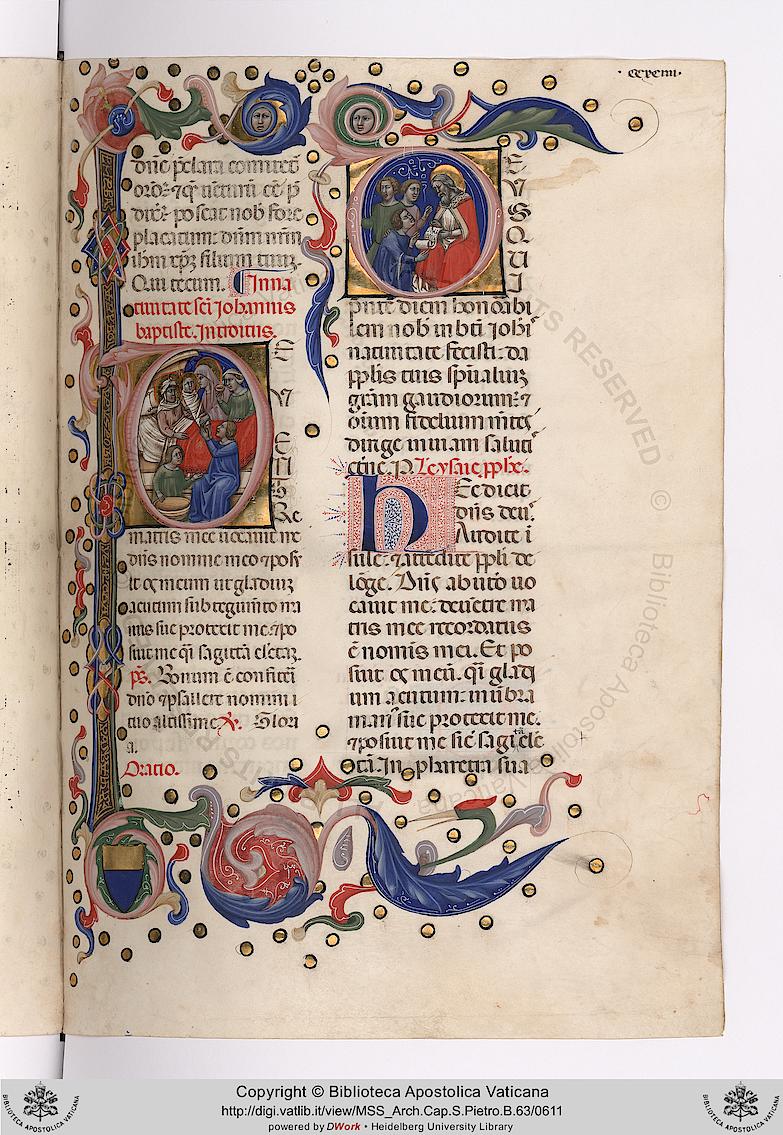 · ccxciiii ·
dñe p̃clara comitet̃
orõ: ⁊ q̃ uentura eẽ p̃
dixit: poscat nob̃ fore
placatum: dñm nr̃m
ihm xp̃z filium tuuz.
Qui tecum. In na
tiuitate sc̃i Iohannis
baptiste. Introitus.
DE
VEN
T
R
E
matris mee uocauit me
dñs nomine meo ⁊ posu
it os meum ut gladiuz
acutum sub tegumẽto ma
nus sue protexit me ⁊ po
suit me q̃i sagittã electaz.
p̃s. Bonum ẽ confiteri
dño ⁊ psallere nomini
tuo altissime. ℣. Glori
a.
Oratio.
DE
VS
Q
V
I
p̃sente diem honorabi
lem nob̃ in bt̃i Ioh̃i
natiuitate fecisti: da
pp̃lis tuis sp̃ualiuz
gr̃am gaudiorum: ⁊
oĩum fidelium mẽtes
dirige in uiam saluti
etñe. P. L. eysaie pp̃he.
Hec dicit
dñs deus.
Audite i
sule: ⁊ attẽdite pp̃li de
lõge. Dñs ab utõ uo
cauit me: de uẽtre ma
tris mee recordatus
ẽ nomĩs mei. Et po
suit os meũ. q̃i gladi
um acutum: in ũbra
manus sue protexit me.
⁊ posuit me sic̃ sagittã ele
ctã. In pharetra sua
RIGHTS RESERVED © Biblioteca Apostolica Vaticana
Copyright © Biblioteca Apostolica Vaticana
http://digi.vatlib.it/view/MSS_Arch.Cap.S.Pietro.B.63/0611
powered by DWork • Heidelberg University Library
BIBLIOTECA APOSTOLICA VATICANA
BIBLIOTECA APOSTOLICA VATICANA